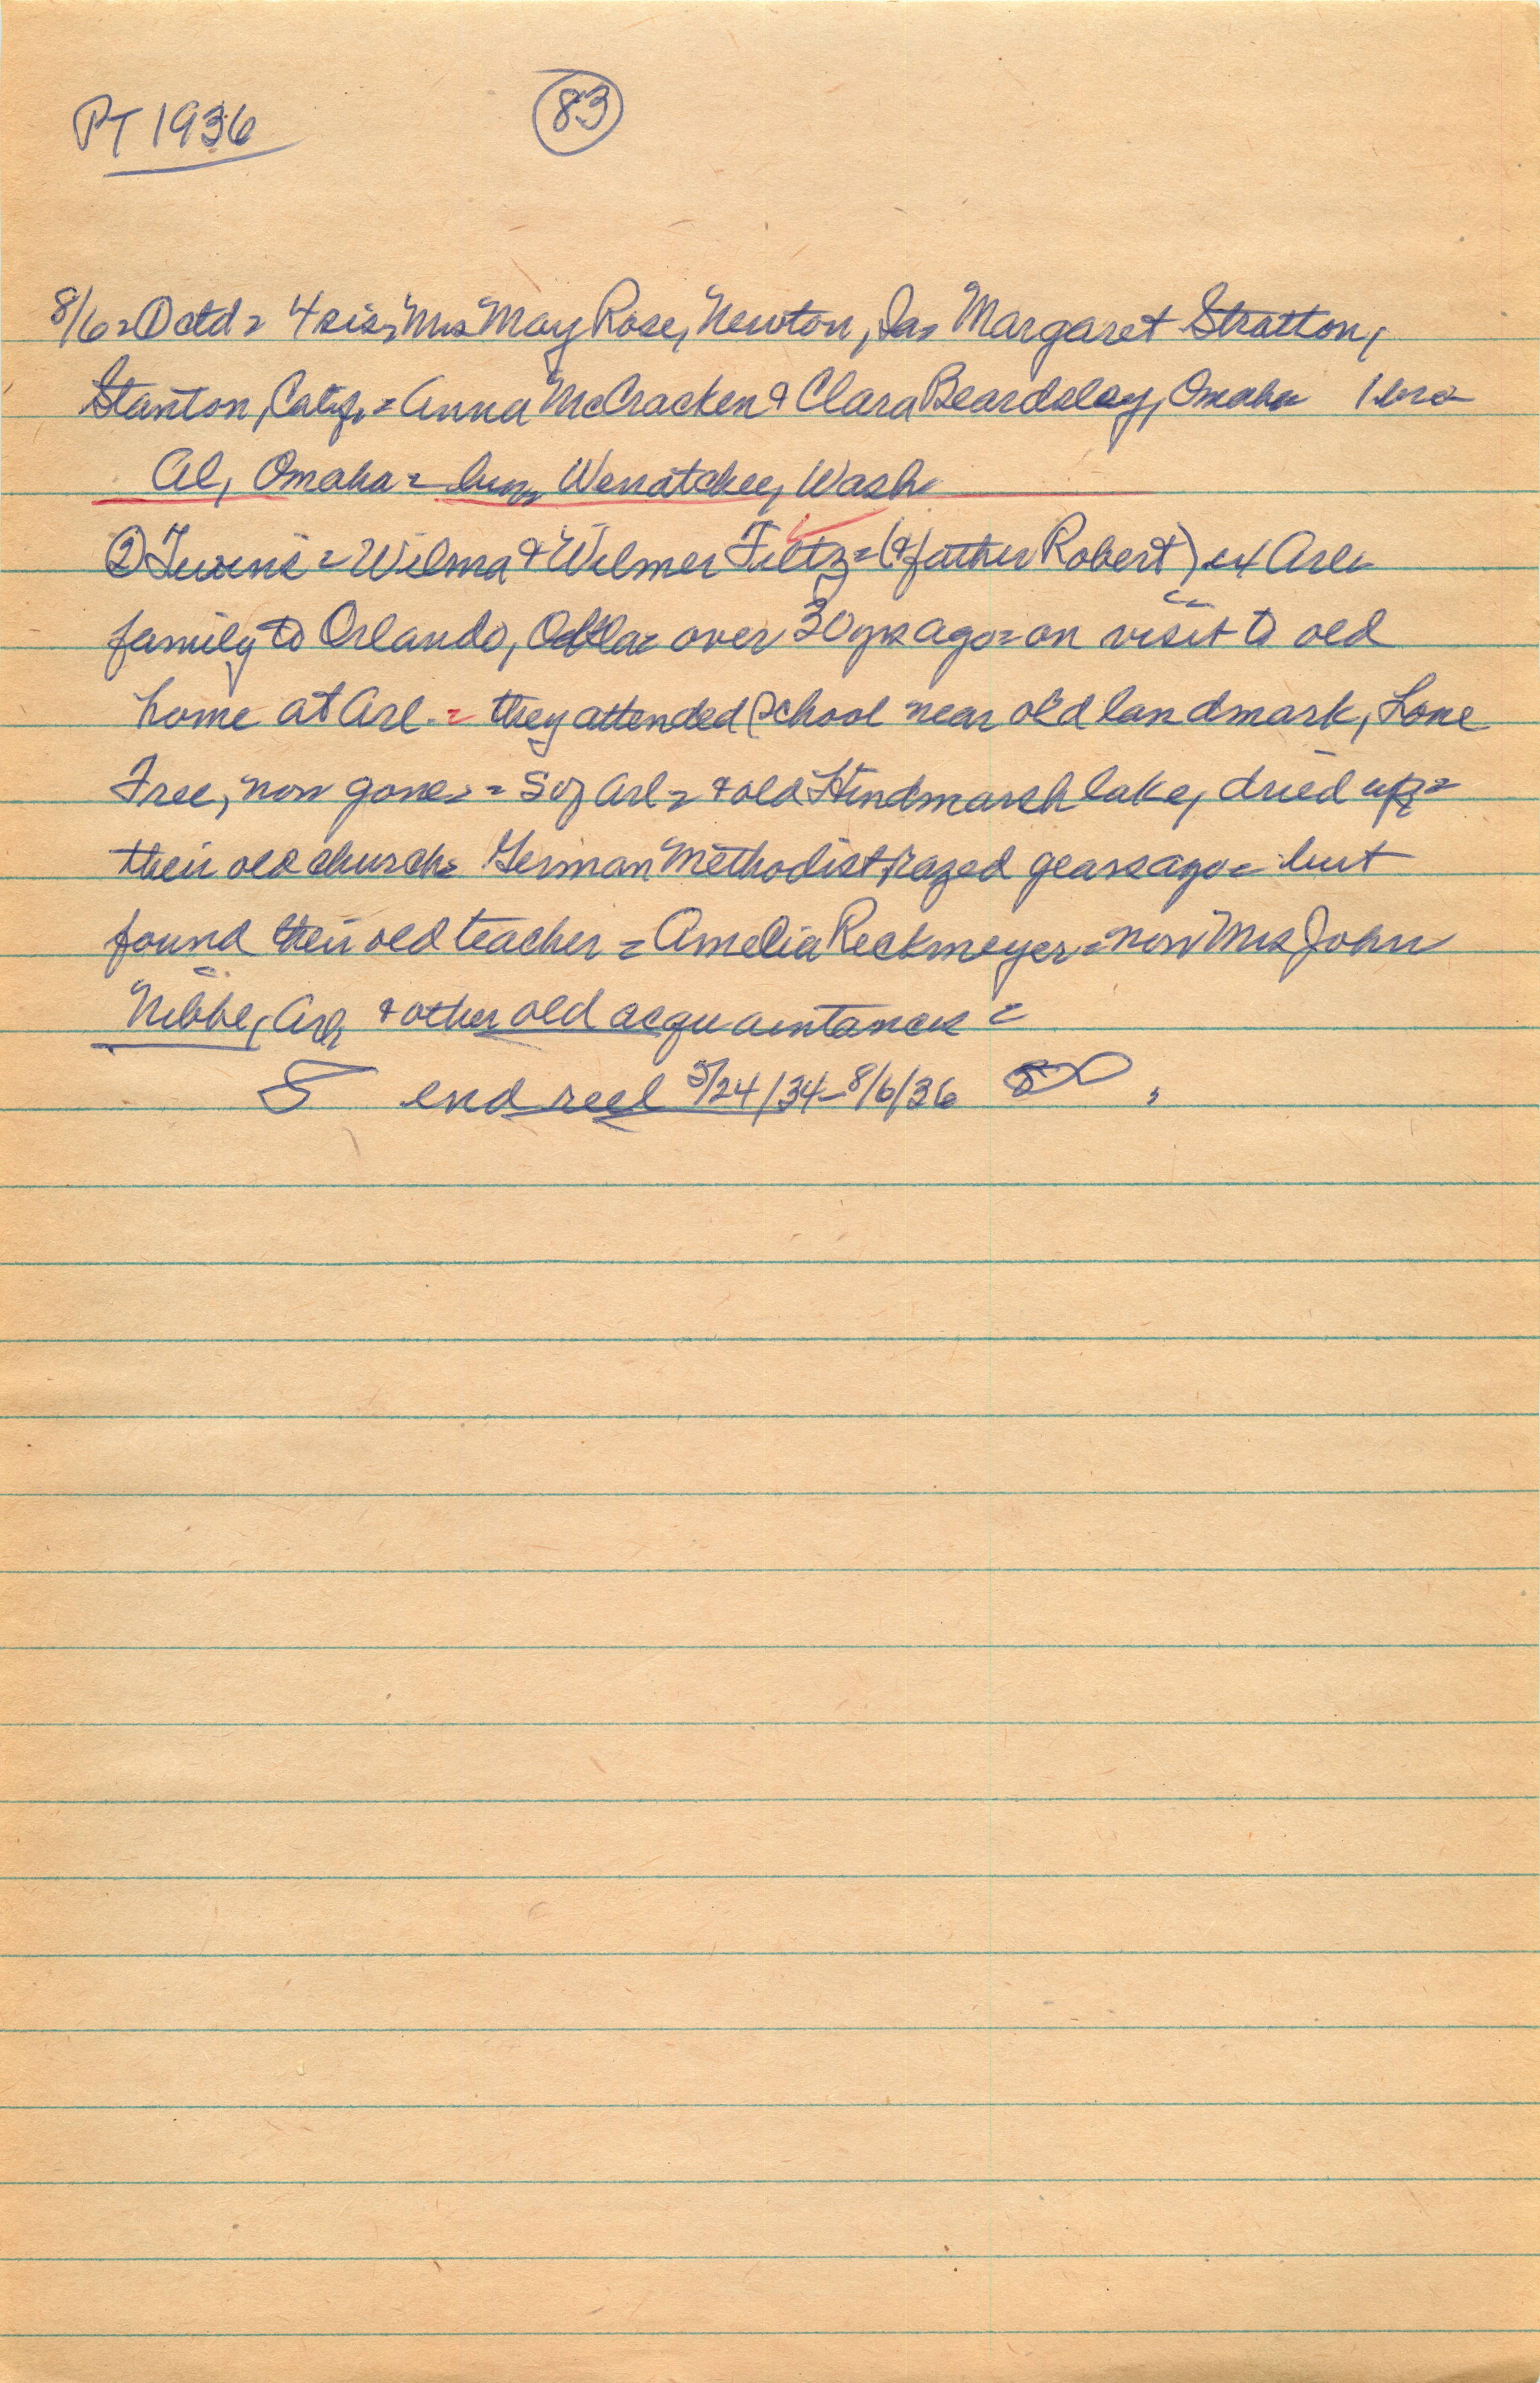 PT 1936
83
8/6 = ① ctd = 4 sis, Mrs May Rose, Newton, Ia = Margaret Stratton,
Stanton, Calif. = Anna McCracken & Clara Beardsley, Omaha 1 bro
Al, Omaha = bur Wenatchee, Wash
② Twins = Wilma & Wilmer Fultz = (& father Robert) ex Arl =
family to Orlando, Okla = over 30 yrs ago = on visit to old
home at Arl. = they attended school near old landmark, Lone
Tree, now gone = S of Arl = & old Hindmarsh lake, dried up =
their old church = German Methodist, razed years ago = but
found their old teacher = Amelia Reckmeyer = now Mrs John
Nibbe, Arl, & other old acquaintances =
end reel 5/24/34 - 8/6/36